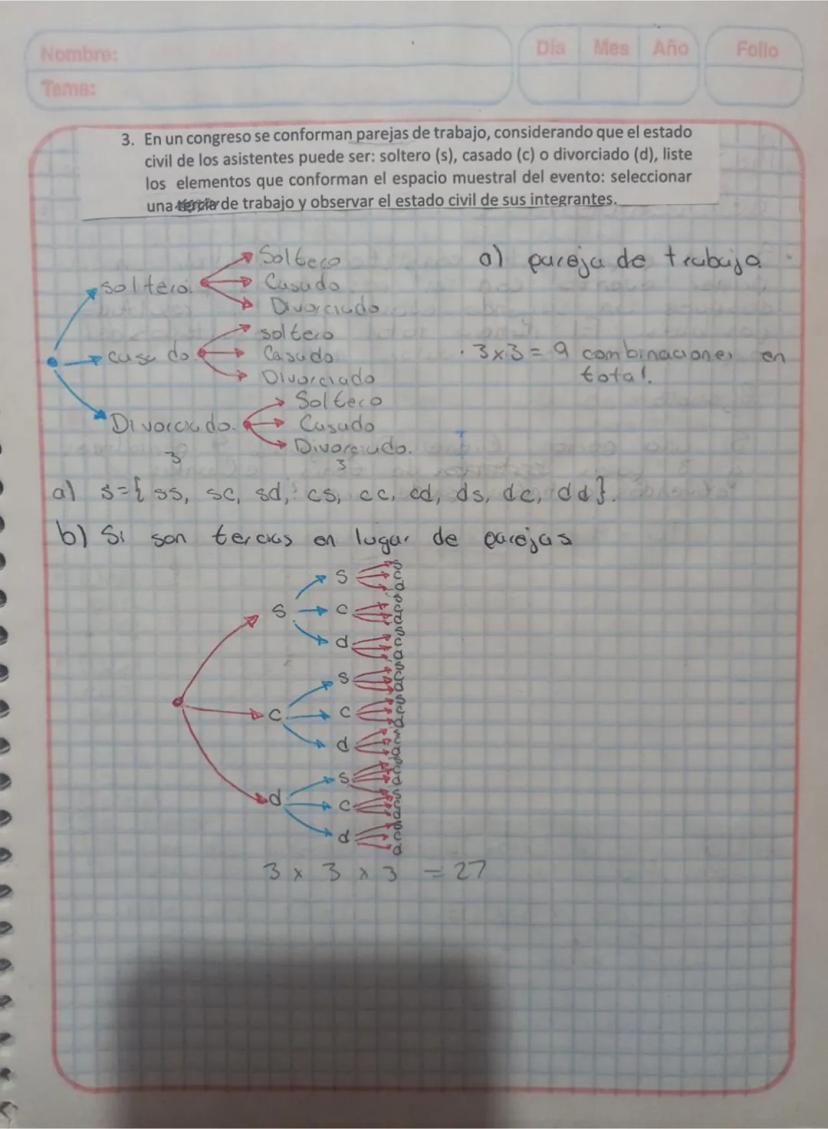 Nombre:
Día Mes Año
Folio
Tema:
3. En un congreso se conforman parejas de trabajo, considerando que el estado
civil de los asistentes puede ser: soltero (s), casado (c) o divorciado (d), liste
los elementos que conforman el espacio muestral del evento: seleccionar
una de trabajo y observar el estado civil de sus integrantes.
a) pareja de trabajo
Soltero
soltero Casado
Divorciado
soltero
casado Casado
Divorciado
· 3x3 = 9 combinaciones en
total.
Soltero
Divorciado. Casado
Divorciado.
3 3
a) s={ss, sc, sd, cs, cc, cd, ds, dc, dd}.
b) Si son tercias en lugar de parejas
s
s c
d
s
c c
d
s
d c
d
3 x 3 x 3 = 27